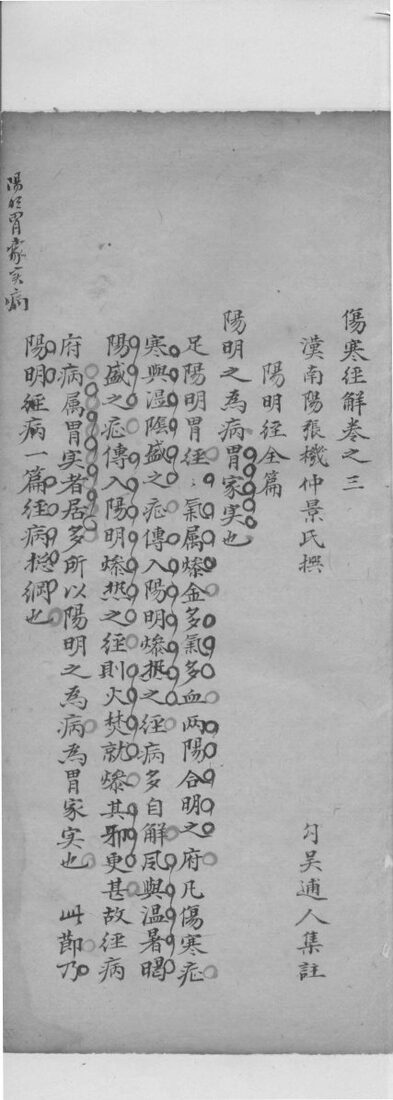 傷寒經解卷之三
漢南陽張機仲景氏撰 勾吳逋人集註
陽明經全篇
陽明之為病胃家实也
足陽明胃經〻氣属燥金多氣多血两陽合明之府凡傷寒症
寒與湿陰盛之症傳入陽明燥热之经病多自解風與温暑暍
陽盛之症傳入陽明燥热之经則火焚就燥其邪更甚故经病
府病属胃实者居多所以陽明之為病為胃家实也 此節乃
陽明經病一篇经病提綱也
陽明胃家实病